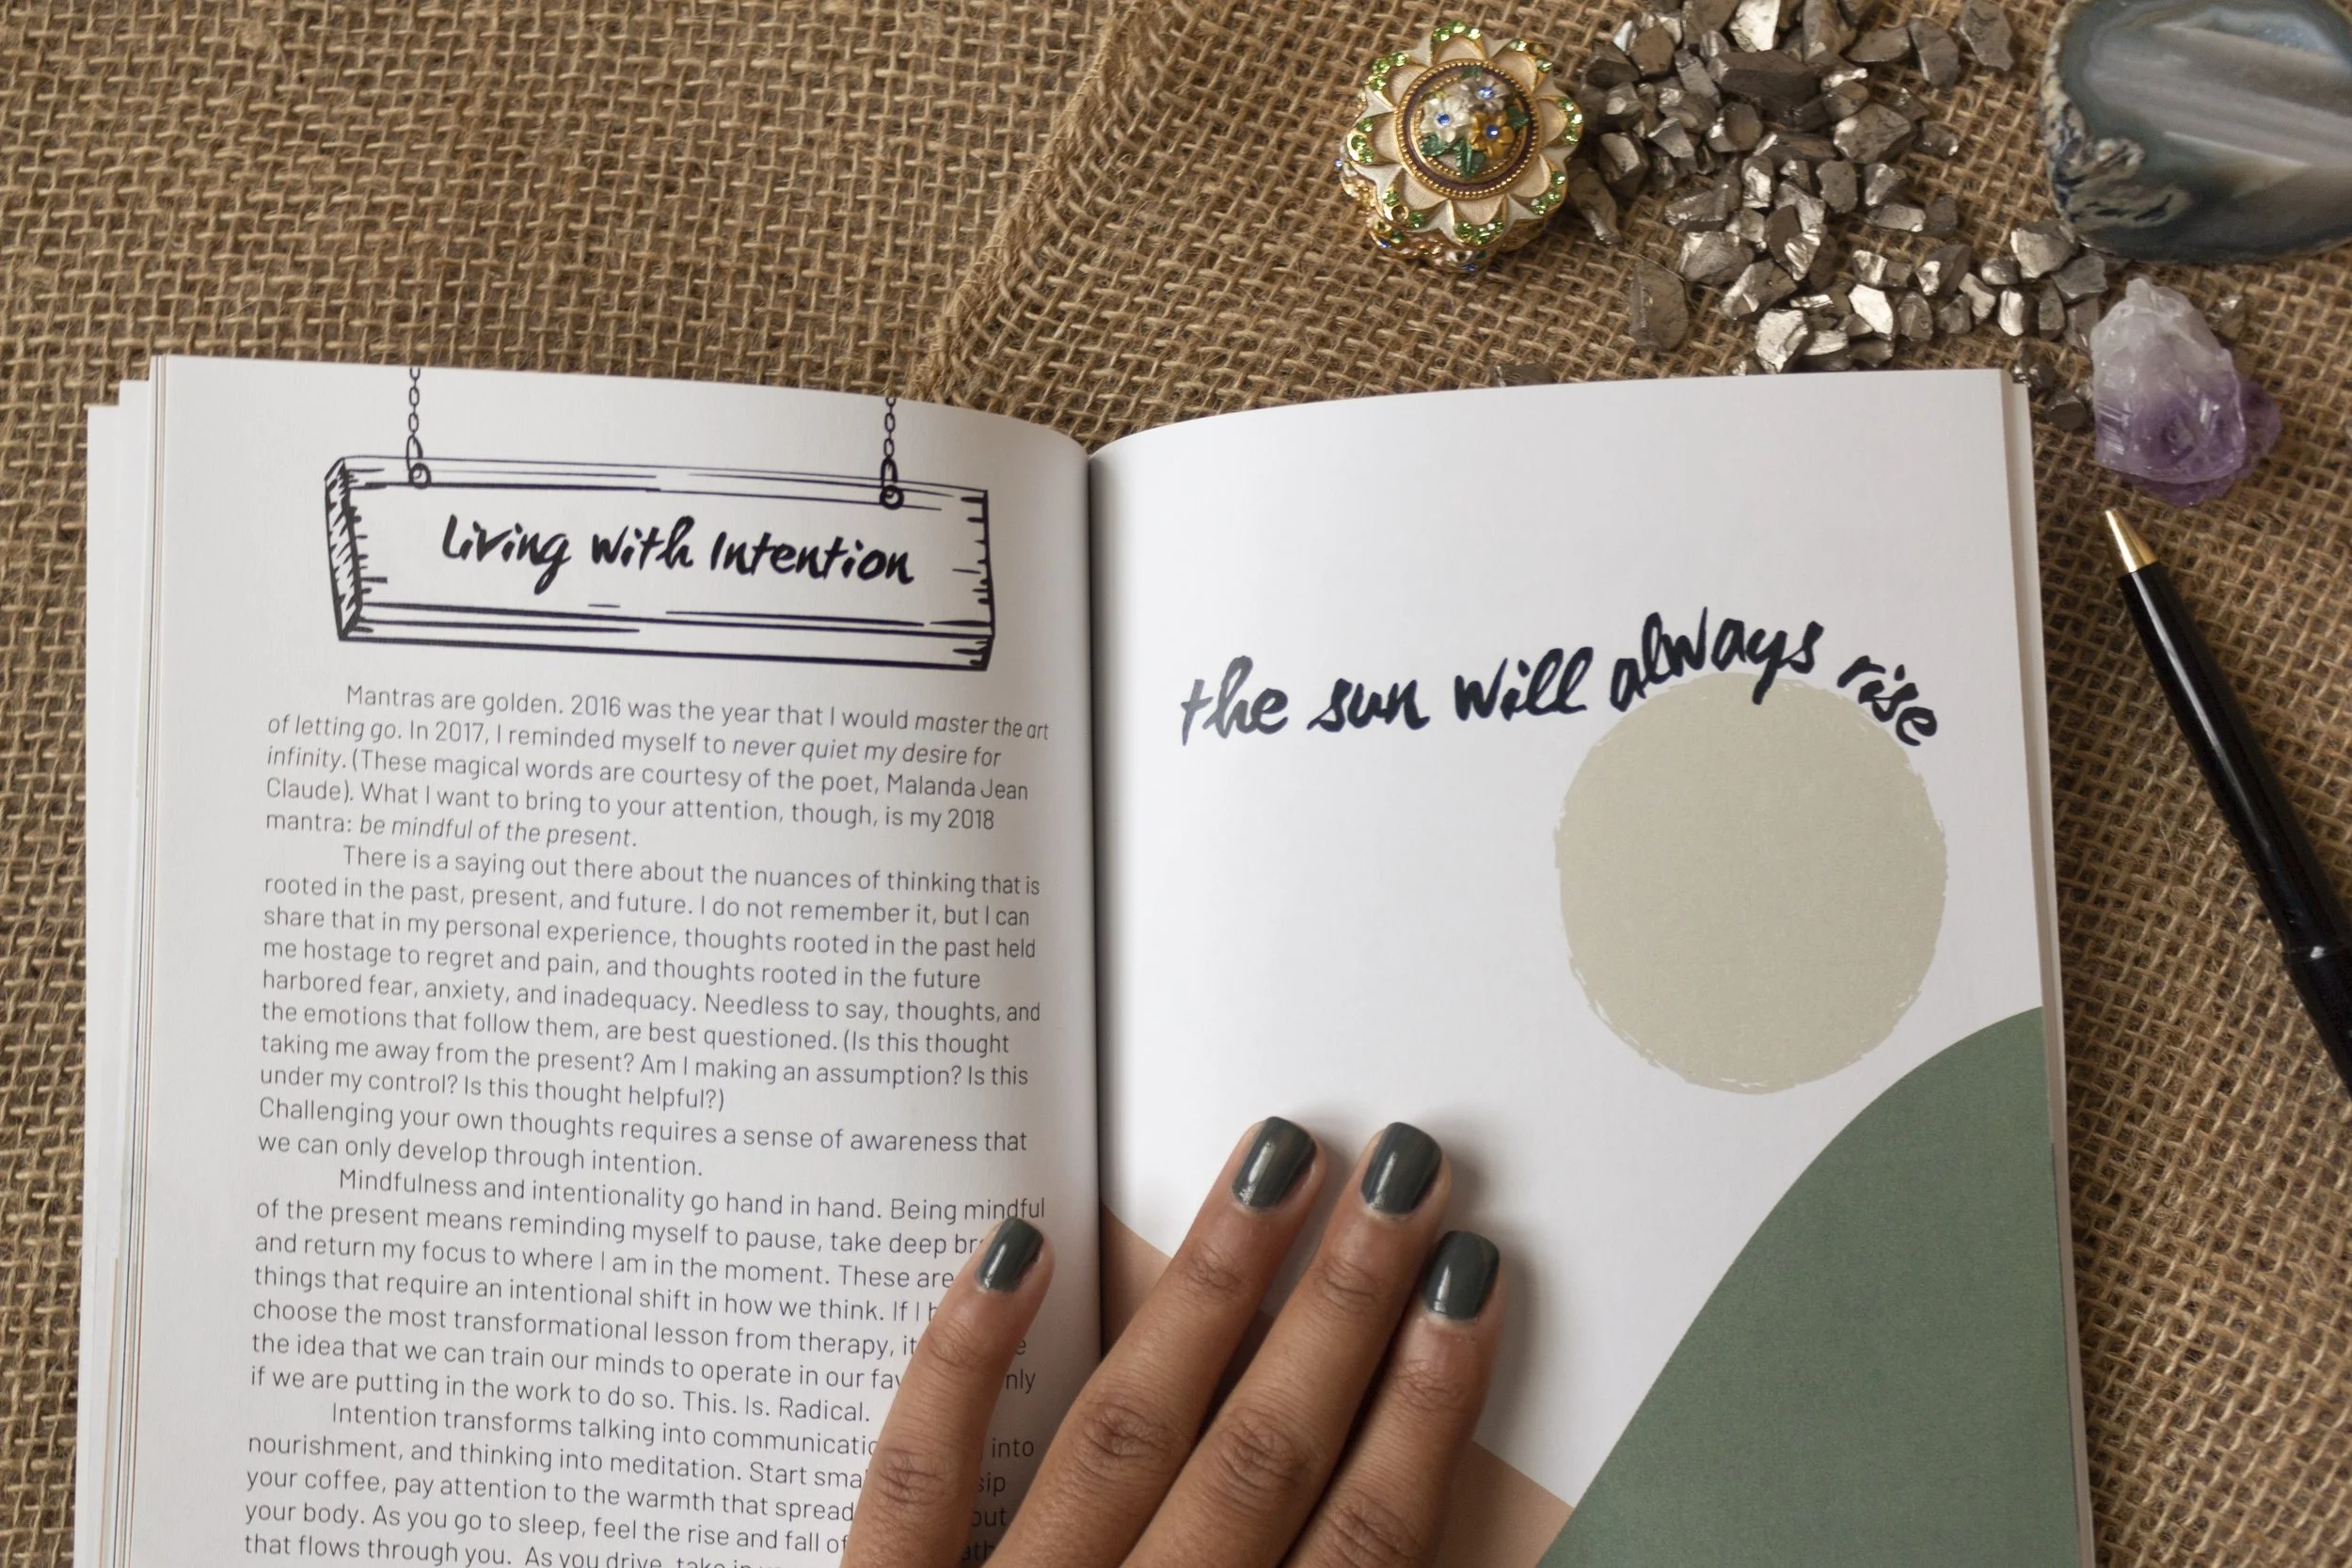 Living with Intention
Mantras are golden. 2016 was the year that I would master the art
of letting go. In 2017, I reminded myself to never quiet my desire for
infinity. (These magical words are courtesy of the poet, Malanda Jean
Claude). What I want to bring to your attention, though, is my 2018
mantra: be mindful of the present.
There is a saying out there about the nuances of thinking that is
rooted in the past, present, and future. I do not remember it, but I can
share that in my personal experience, thoughts rooted in the past held
me hostage to regret and pain, and thoughts rooted in the future
harbored fear, anxiety, and inadequacy. Needless to say, thoughts, and
the emotions that follow them, are best questioned. (Is this thought
taking me away from the present? Am I making an assumption? Is this
under my control? Is this thought helpful?)
Challenging your own thoughts requires a sense of awareness that
we can only develop through intention.
Mindfulness and intentionality go hand in hand. Being mindful
of the present means reminding myself to pause, take deep
and return my focus to where I am in the moment. These are
things that require an intentional shift in how we think. If I
choose the most transformational lesson from therapy,
the idea that we can train our minds to operate in our
if we are putting in the work to do so. This. Is. Radical.
Intention transforms talking into into
nourishment, and thinking into meditation. Start sip
your coffee, pay attention to the warmth that
your body. As you go to sleep, feel the rise and fall of
that flows through you. As you drive, take
the sun will always rise